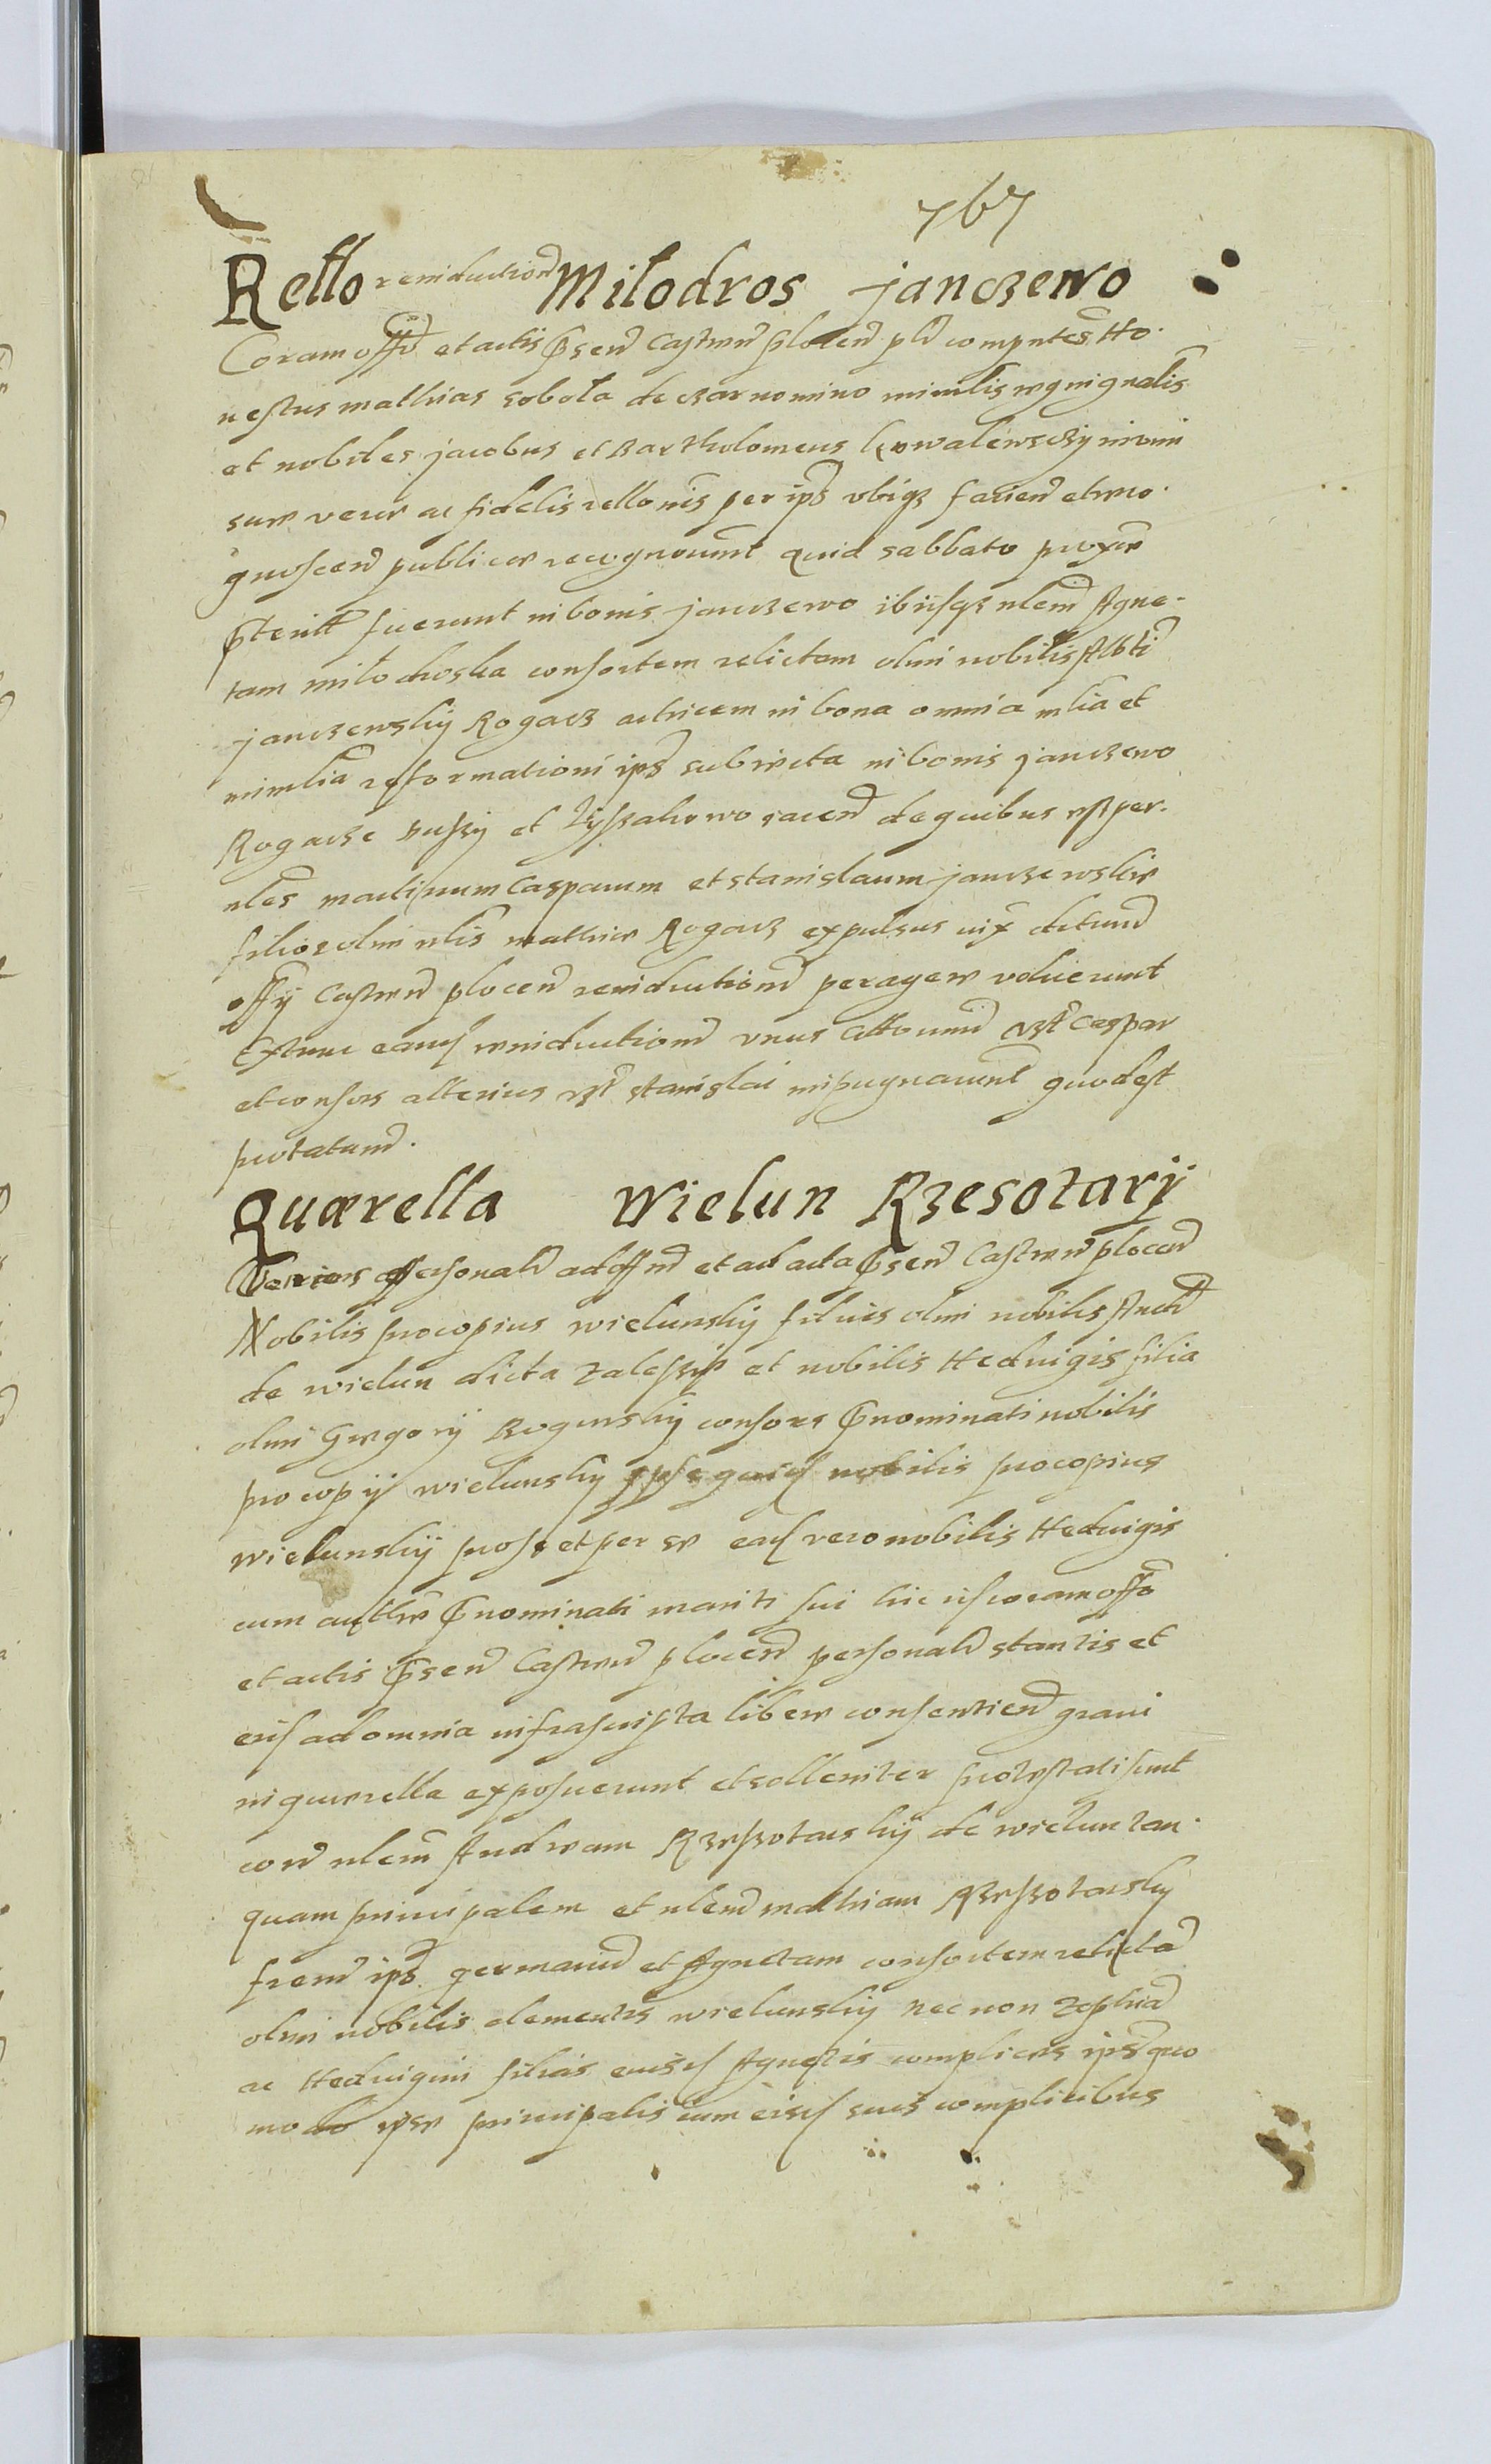 767
Rello reinductionẽ Milodros janczewo
Coram offõ et actis Pñsen Castren plocen plr compntes Ho.
nestus mathias sobota de czarnomino minslis regnignalis
et nobiles jacobus et Bartholomeus kowalewsczy in vim
sue vere ac fidelis rellonis per ipos vbiqz facien et reco.
gnoscen publice recognouernt quid sabbato proxie
pterito fuerunt in bonis janczewo ibiisqz nlem Agne.
tam milodroska consortem relictam olim nobilis Alb̃ti
janczewsky Rogacz actricem in bona omnia mlia et
minlia reformationi ips subiecta in bonis janczewo
Rogacze et iacen de quibus est per
nles martinum Casparum et stanislaum janczewskie
filios olim nlis mathie Rogacz expulsus iux decretum
offij Castren plocen reinductionẽ peragere voluerunt
Extunc eand reinductionẽ vnus cittorum caspar
et consors alterius stanislai inpugnauernt quod est
protatum.
Quærella Wielun Rzesotarÿ
Venientes personalr ad offm et ad acta Pñsen Castren plocen
Nobilis procopius wielunsky filius olim nobilis Andre
de wielun dicta zaleszye et nobilis Hedwigis filia
olim Gregorÿ Roginsky consors Pñnominati nobilis
procopij wielunsky ipseqund nobilis procopius
wielunskÿ pro se et per se ead vero nobilis Hedwigis
cum aucthte Pñnominati mariti sui hic iis coram offo
et actis Pñsen Castren plocen personalr stantis et
eius ad omnia infrascripta libere consentien graui
in querella exposuerunt et solleniter protestati sunt
con nlem Andream Rzeszotarskÿ de wielun tan.
quam principalem et nlem mathiam Rzeszotarsky
frem ips germanũ et Agnetam consortem relictã
olim nobilis clementis wielunsky nec non zophiã
ac Hedwigim filias eiusd Agnetis complices ips quo
modo ipse principalis cum eisd suis complicibus